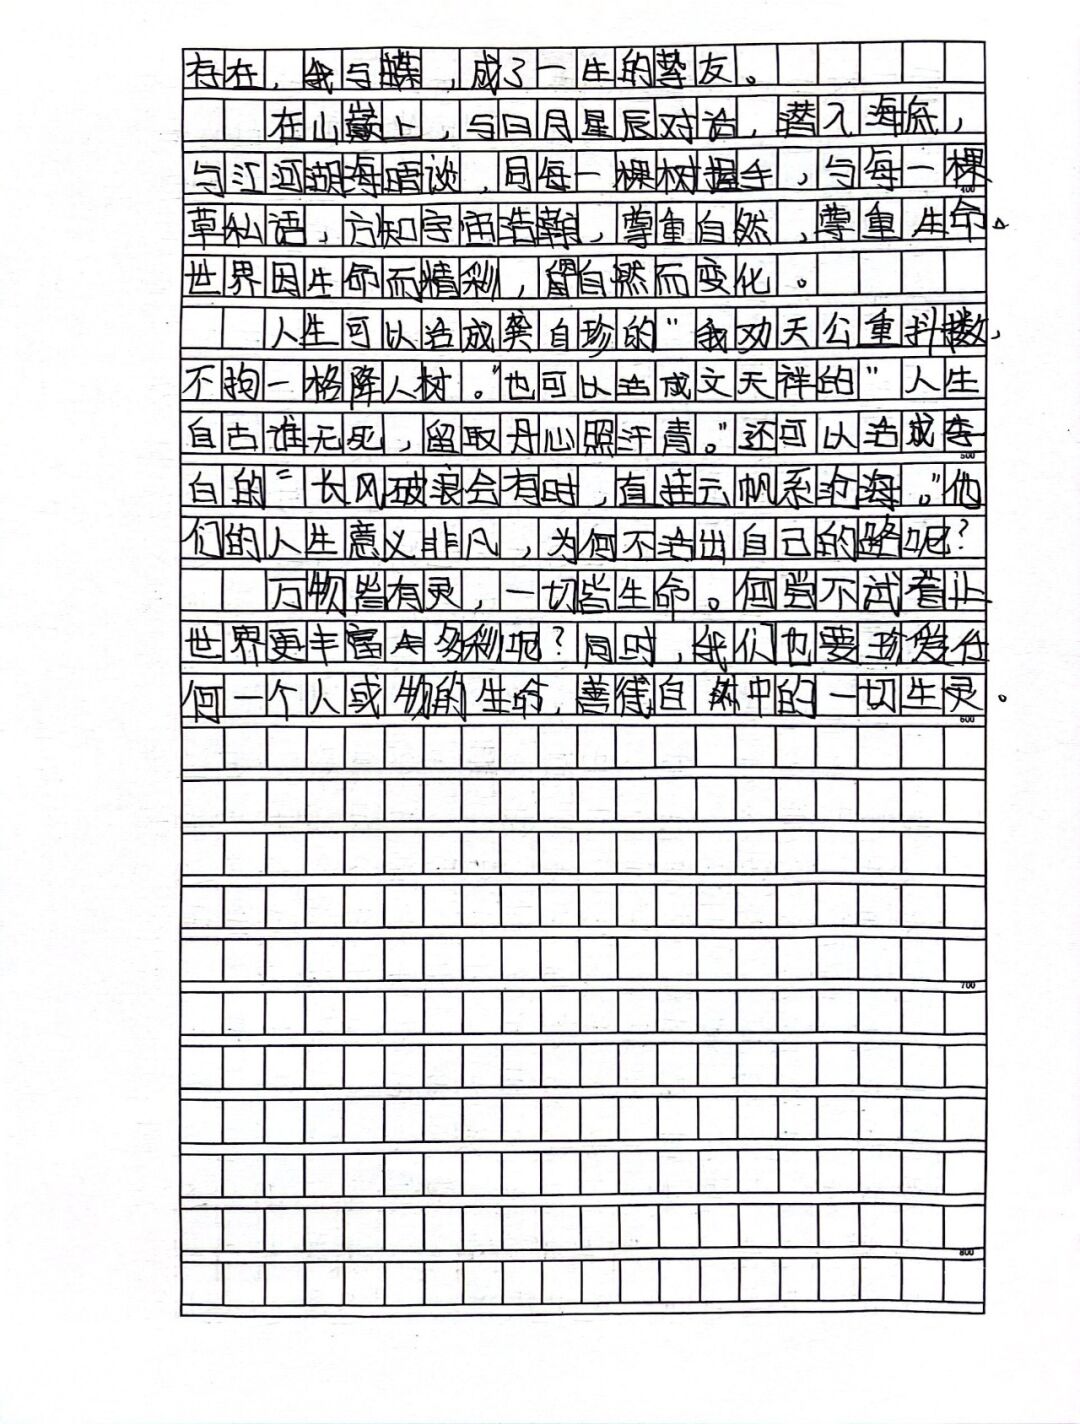 存在，我与蝶，成了一生的挚友。
在山巅上，与日月星辰对话，潜入海底，
与江河湖海晤谈，同每一棵树握手，与每一棵
400
草私语，方知宇宙浩瀚，尊重自然，尊重生命。
世界因生命而精彩，留自然而变化。
人生可以活成龚自珍的“我劝天公重抖擞，
不拘一格降人树。”也可以活成文天祥的“人生
自古谁无死，留取丹心照汗青。”还可以活成李
500
白的“长风破浪会有时，直挂云帆系沧海。”他
们的人生意义非凡，为何不活出自己的路呢？
万物皆有灵，一切皆生命。何尝不试着让
世界更丰富多彩呢？同时，我们也要珍爱任
何一个人或物的生命，善待自然中的一切生灵。
600
700
800